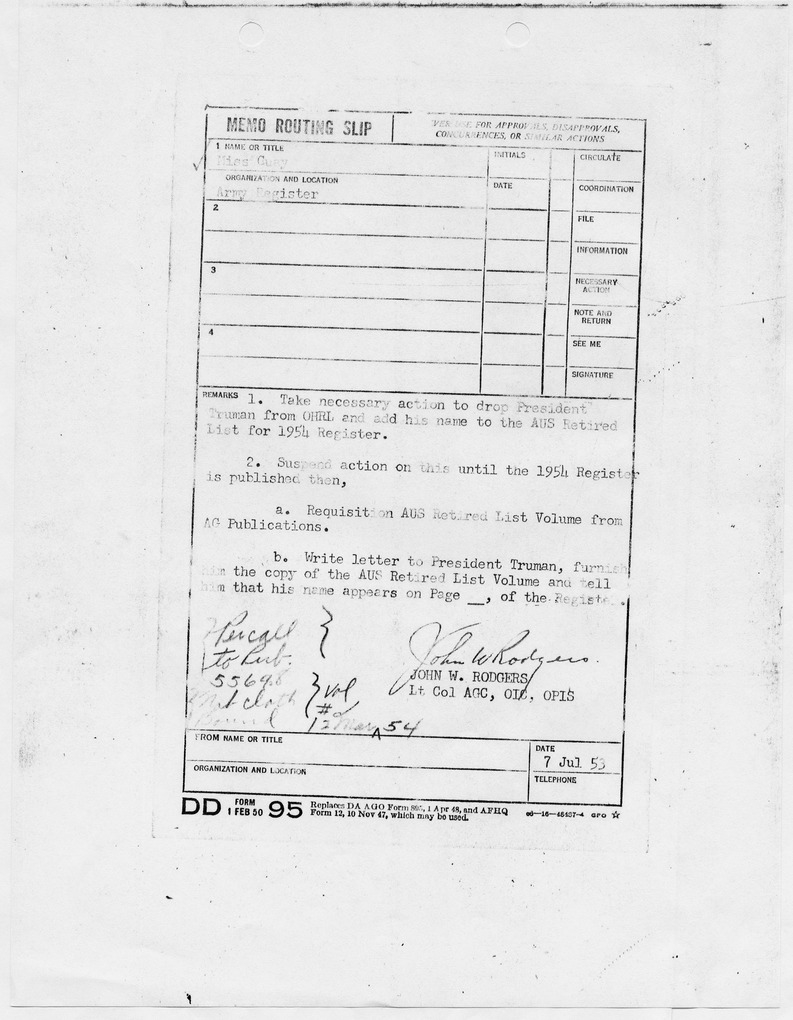 MEMO ROUTING SLIP
NEVER USE FOR APPROVALS, DISAPPROVALS,
CONCURRENCES, OR SIMILAR ACTIONS
1 NAME OR TITLE
INITIALS
CIRCULATE
Miss
ORGANIZATION AND LOCATION
DATE
COORDINATION
Army Register
2
FILE
INFORMATION
3
NECESSARY
ACTION
NOTE AND
RETURN
4
SEE ME
SIGNATURE
REMARKS 1. Take necessary action to drop President
Truman from OHRL and add his name to the AUS Retired
List for 1954 Register.
2. Suspend action on this until the 1954 Register
is published then,
a. Requisition AUS Retired List Volume from
AG Publications.
b. Write letter to President Truman, furnish
him the copy of the AUS Retired List Volume and tell
him that his name appears on Page __, of the Register.
Per call
to Pub.
55698
Not cloth
Bound
} Vol
#2
12 Mar 54
John W Rodgers
JOHN W. RODGERS
Lt Col AGC, OIC, OPIS
FROM NAME OR TITLE
DATE
7 Jul 53
ORGANIZATION AND LOCATION
TELEPHONE
DD FORM 1 FEB 50 95 Replaces DA AGO Form 895, 1 Apr 48, and AFHQ
Form 12, 10 Nov 47, which may be used.
GPO ☆